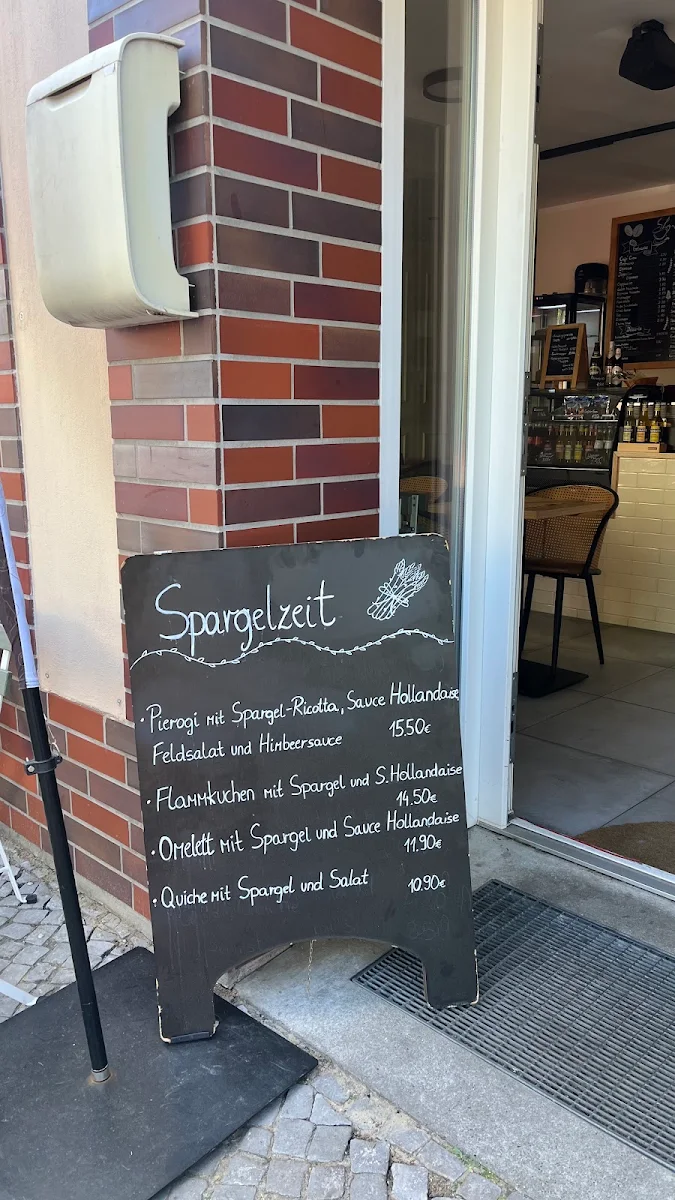 Spargelzeit
· Pierogi mit Spargel-Ricotta, Sauce Hollandaise
Feldsalat und Himbeersauce 15.50€
· Flammkuchen mit Spargel und S. Hollandaise
14.50€
· Omelett mit Spargel und Sauce Hollandaise
11.90€
· Quiche mit Spargel und Salat 10.90€